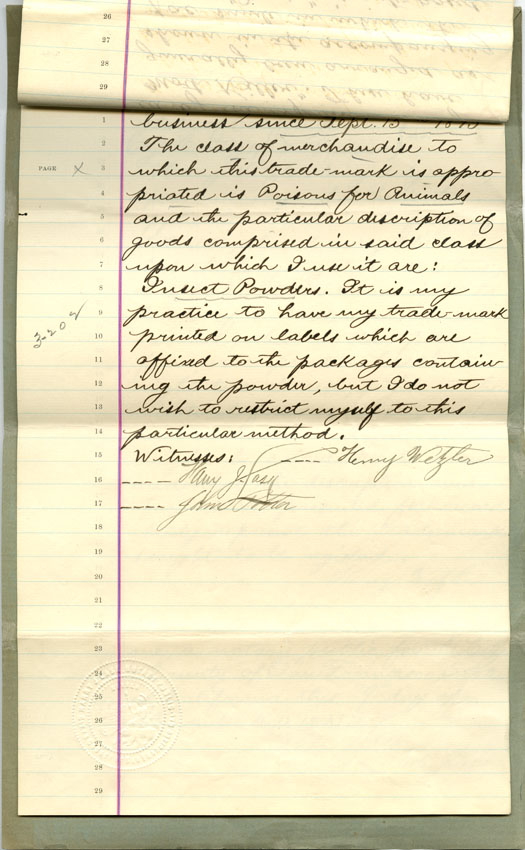 26
27
28
29
1 business since Sept. 15
2 The class of merchandise to
PAGE X 3 which this trade-mark is appro-
4 priated is Poisons for Animals
5 and the particular description of
6 goods comprised in said class
7 upon which I use it are:
8 Insect Powders. It is my
9 practice to have my trade-mark
3-202
10 printed on labels which are
11 affixed to the packages contain-
12 ing the powder, but I do not
13 wish to restrict myself to this
14 particular method.
15 Witnesses: ---- Henry Wetzler
16 ----
17 ---- John
18
19
20
21
22
23
24
25
26
27
28
29